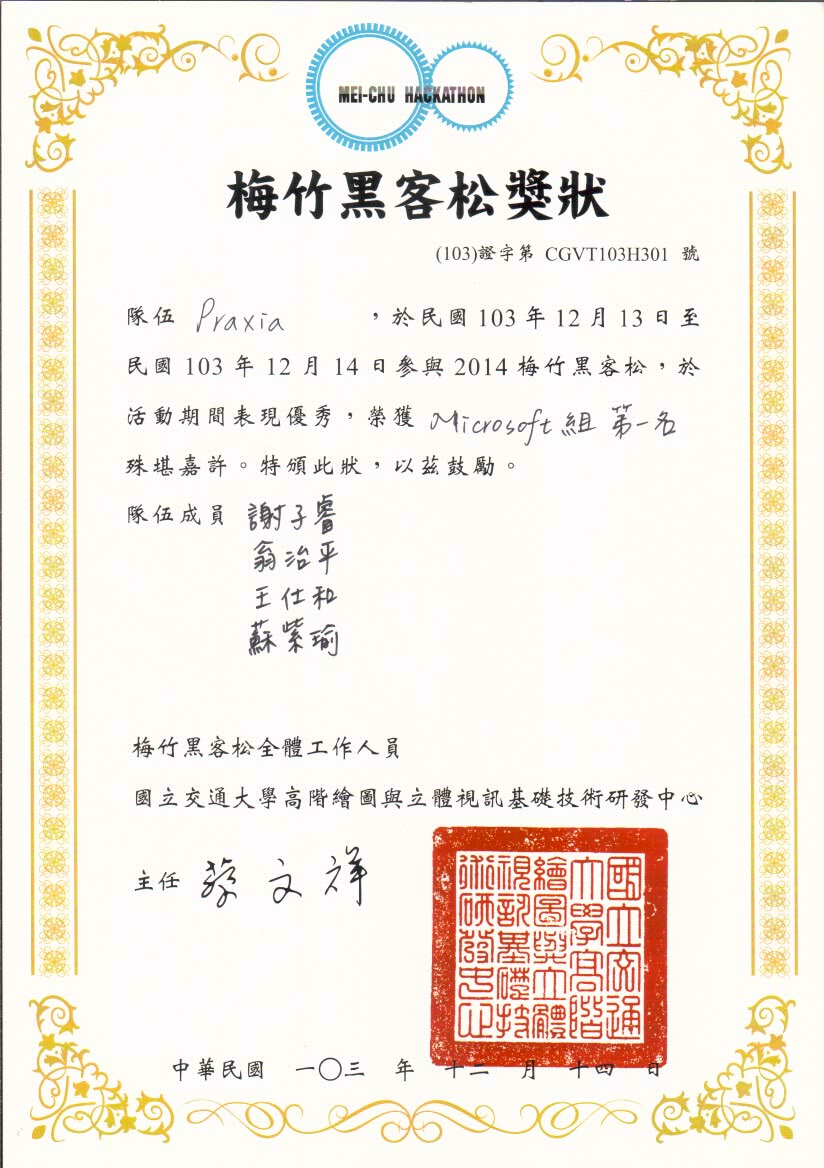 MEI-CHU HACKATHON
梅竹黑客松獎狀
(103)證字第 CGVT103H301 號
隊伍 Praxia ，於民國103年12月13日至
民國103年12月14日參與2014梅竹黑客松，於
活動期間表現優秀，榮獲 Microsoft組 第一名
殊堪嘉許。特頒此狀，以茲鼓勵。
隊伍成員 謝子睿
翁治平
王仕和
蘇紫瑜
梅竹黑客松全體工作人員
國立交通大學高階繪圖與立體視訊基礎技術研發中心
主任 蔡文祥
國立交通
大學高階
繪圖與立體
視訊基礎技
術研發中心
中華民國 一〇三 年 十二 月 十四 日